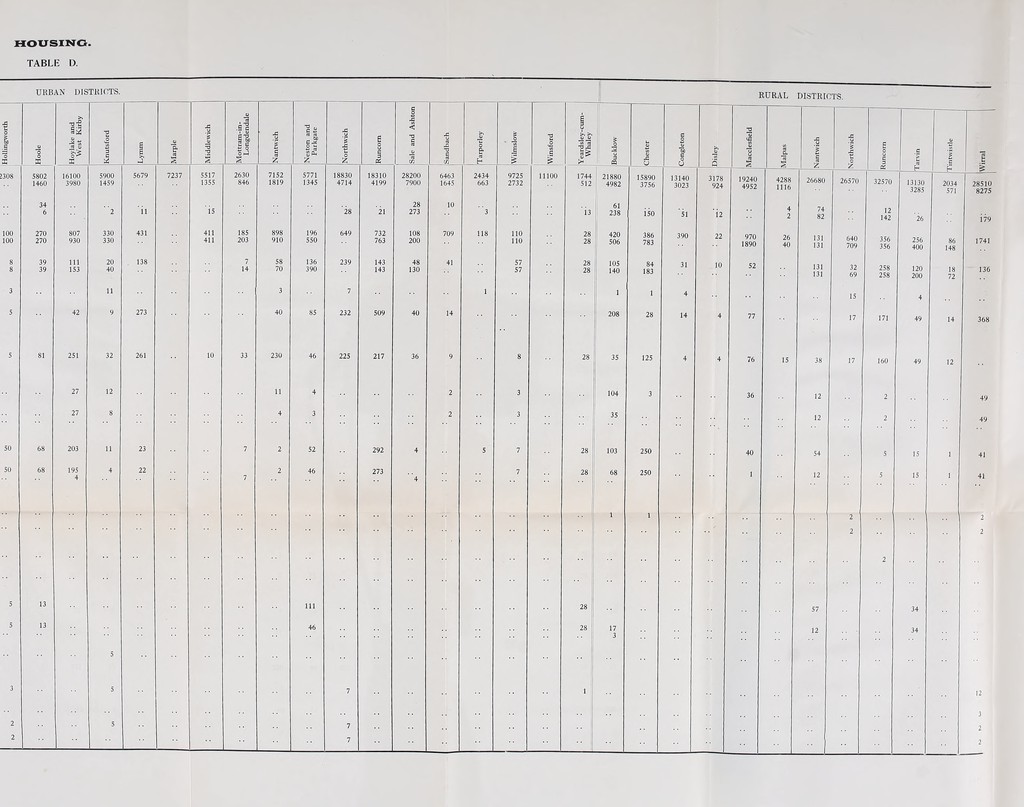 HOUSING.
TABLE D.
URBAN DISTRICTS. RURAL DISTRICTS.
Hollingworth Hoole Hoylake and West Kirby Knutsford Lymm Marple Middlewich Mottram-in-Longdendale Nantwich Neston and Parkgate Northwich Runcorn Sale and Ashton Sandbach Tarporley Wilmslow Winsford Yeardsley-cum-Whaley Bucklow Chester Congleton Disley Macclesfield Malpas Nantwich Northwich Runcorn Tarvin Tintwistle Wirral
2308 5802 16100 5900 5679 7237 5517 2630 7152 5771 18830 18310 28200 6463 2434 9725 11100 1744 21880 15890 13140 3178 19240 4288 26680 26570 32570 13130 2034 28510
1460 3980 1459 .. .. 1355 846 1819 1345 4714 4199 7900 1645 663 2732 512 4982 3756 3023 924 4952 1116 3285 571 8275
.. 34 .. .. .. .. .. .. .. .. .. .. 28 10 .. .. .. .. 61 .. .. .. .. 4 74 .. 12 .. .. ..
.. 6 .. 2 11 .. 15 .. .. .. 28 21 273 .. 3 .. .. 13 238 150 51 12 .. 2 82 .. 142 26 .. 179
100 270 807 330 431 .. 411 185 898 196 649 732 108 709 118 110 .. 28 420 386 390 22 970 26 131 640 356 256 86 1741
100 270 930 330 .. .. 411 203 910 550 .. 763 200 110 28 506 783 .. .. 1890 40 131 709 356 400 148
8 39 111 20 138 .. .. 7 58 136 239 143 48 41 .. 57 .. 28 105 84 31 10 52 .. 131 32 258 120 18 136
8 39 153 40 14 70 390 .. 143 130 57 28 140 183 .. .. .. .. 131 69 258 200 72 ..
3 .. .. 11 .. .. .. .. 3 .. 7 .. .. .. 1 .. .. .. 1 1 4 .. .. .. .. 15 .. 4 .. ..
5 .. 42 9 273 .. .. .. 40 85 232 509 40 14 .. .. .. .. 208 28 14 4 77 .. .. 17 171 49 14 368
5 81 251 32 261 .. 10 33 230 46 225 217 36 9 .. 8 .. 28 35 125 4 4 76 15 38 17 160 49 12 ..
.. .. 27 12 .. .. .. .. 11 4 .. .. .. 2 .. 3 .. .. 104 3 .. .. 36 .. 12 .. 2 .. .. 49
.. .. 27 8 .. .. .. .. 4 3 .. .. .. 2 .. 3 .. .. 35 .. .. .. .. .. 12 .. 2 .. .. 49
50 68 203 11 23 .. .. 7 2 52 .. 292 4 .. 5 7 .. 28 103 250 .. .. 40 .. 54 .. 5 15 1 41
50 68 195 4 22 .. .. .. 2 46 .. 273 .. .. .. 7 .. 28 68 250 .. .. 1 .. 12 .. 5 15 1 41
.. .. 4 .. .. .. .. 7 .. .. .. .. 4 .. .. .. .. .. .. .. .. .. .. .. .. .. .. .. .. ..
.. .. .. .. .. .. .. .. .. .. .. .. .. .. .. .. .. .. 1 1 .. .. .. .. .. 2 .. .. .. 2
.. .. .. .. .. .. .. .. .. .. .. .. .. .. .. .. .. .. .. .. .. .. .. .. .. 2 .. .. .. 2
.. .. .. .. .. .. .. .. .. .. .. .. .. .. .. .. .. .. .. .. .. .. .. .. .. .. 2 .. .. ..
.. .. .. .. .. .. .. .. .. .. .. .. .. .. .. .. .. .. .. .. .. .. .. .. .. .. .. .. .. ..
5 13 .. .. .. .. .. .. .. 111 .. .. .. .. .. .. .. 28 .. .. .. .. .. .. 57 .. .. 34 .. ..
5 13 .. .. .. .. .. .. .. 46 .. .. .. .. .. .. .. 28 17 .. .. .. .. .. 12 .. .. 34 .. ..
.. .. .. .. .. .. .. .. .. .. .. .. .. .. .. .. .. .. 3 .. .. .. .. .. .. .. .. .. .. ..
.. .. .. 5 .. .. .. .. .. .. .. .. .. .. .. .. .. .. .. .. .. .. .. .. .. .. .. .. .. ..
3 .. .. 5 .. .. .. .. .. .. 7 .. .. .. .. .. .. 1 .. .. .. .. .. .. .. .. .. .. .. 12
.. .. .. .. .. .. .. .. .. .. .. .. .. .. .. .. .. .. .. .. .. .. .. .. .. .. .. .. .. 3
2 .. .. 5 .. .. .. .. .. .. 7 .. .. .. .. .. .. .. .. .. .. .. .. .. .. .. .. .. .. 2
2 .. .. .. .. .. .. .. .. .. 7 .. .. .. .. .. .. .. .. .. .. .. .. .. .. .. .. .. .. 2